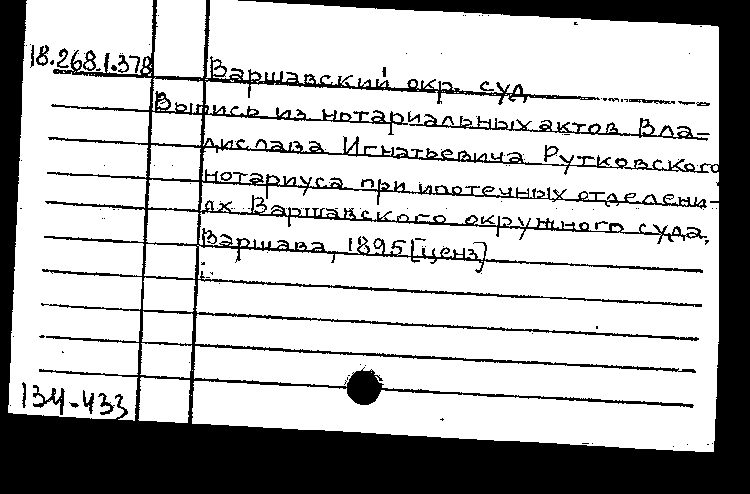 18.268.1.378
Варшавский окр. суд
Выпись из нотариальных актов Вла=
дислава Игнатьевича Рутковского
нотариуса при ипотечных отделени-
ях Варшавского окружного суда.
Варшава, 1895 [ценз]
134-433